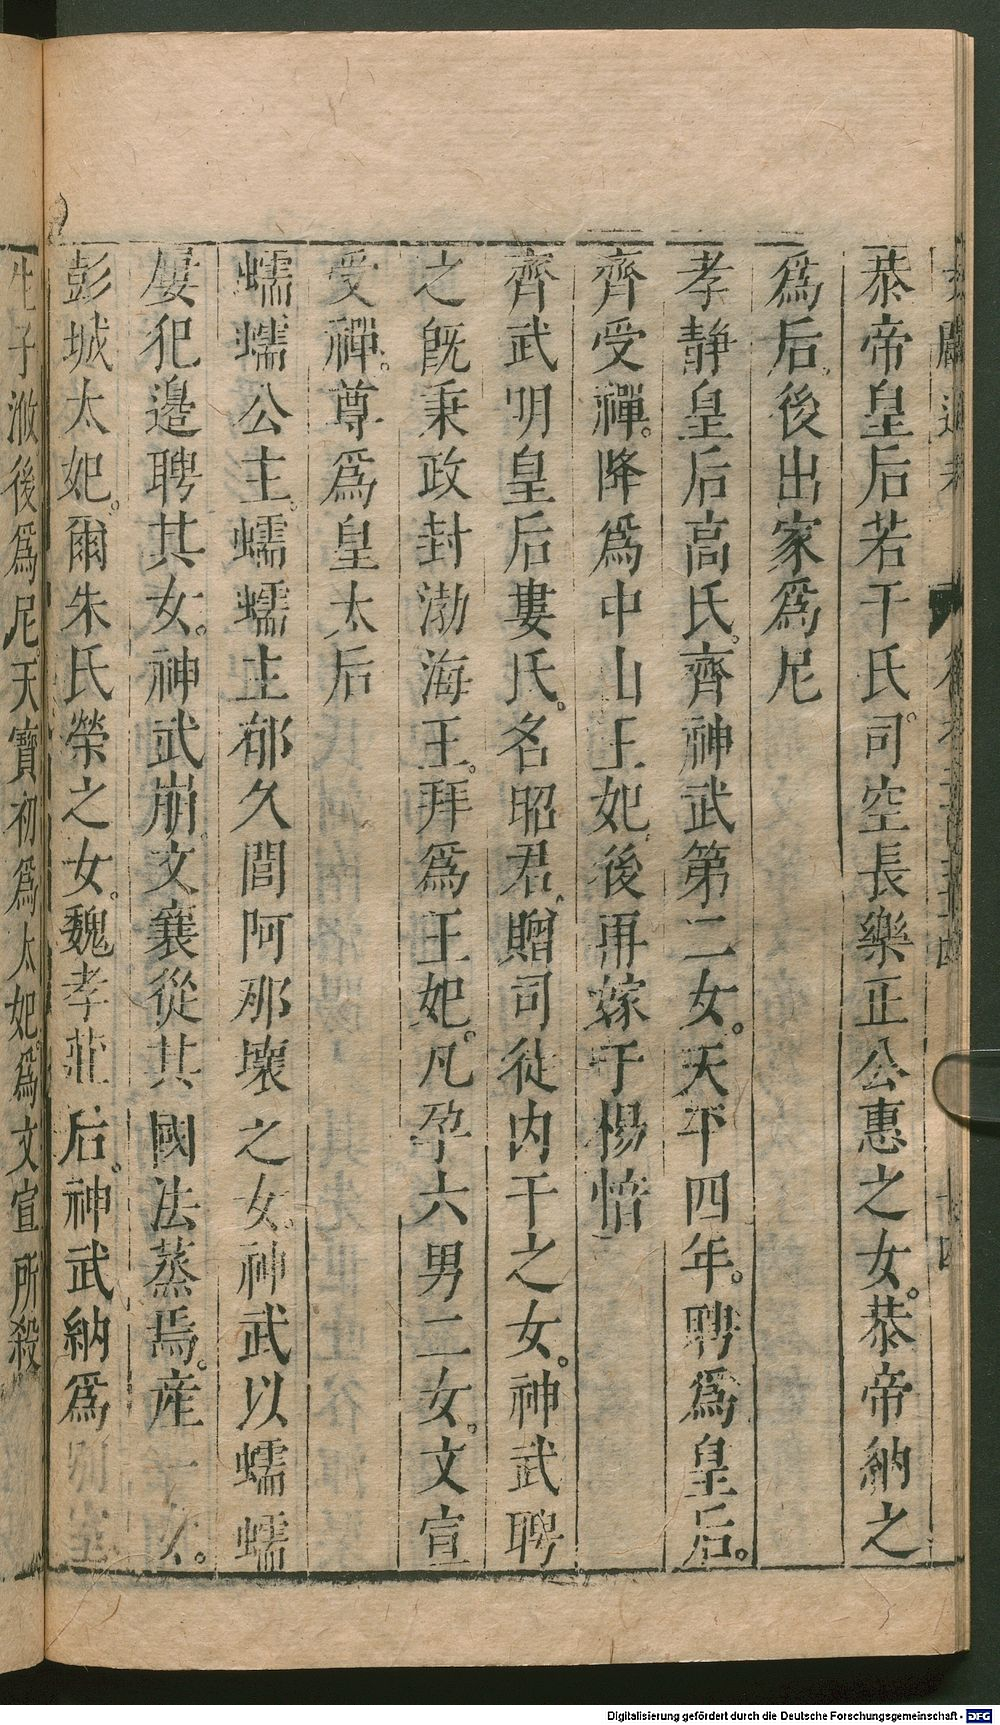 恭帝皇后若干氏。司空長樂正公惠之女。恭帝納之
爲后。後出家爲尼
孝靜皇后高氏。齊神武第二女。天平四年。聘爲皇后。
齊受禪。降爲中山王妃。後再嫁于楊愔
齊武明皇后婁氏。名昭君。贈司徒内干之女。神武聘
之旣秉政封渤海王。拜爲王妃。凡孕六男二女。文宣
受禪。尊爲皇太后
蠕蠕公主。蠕蠕主郁久閭阿那壞之女。神武以蠕蠕
屢犯邉聘其女。神武崩。文襄從其國法蒸焉。産一女。
彭城太妃。爾朱氏榮之女。魏孝莊后。神武納爲別室
生子浟後爲尼天寳初爲太妃。爲文宣所殺
Digitalisierung gefördert durch die Deutsche Forschungsgemeinschaft - DFG